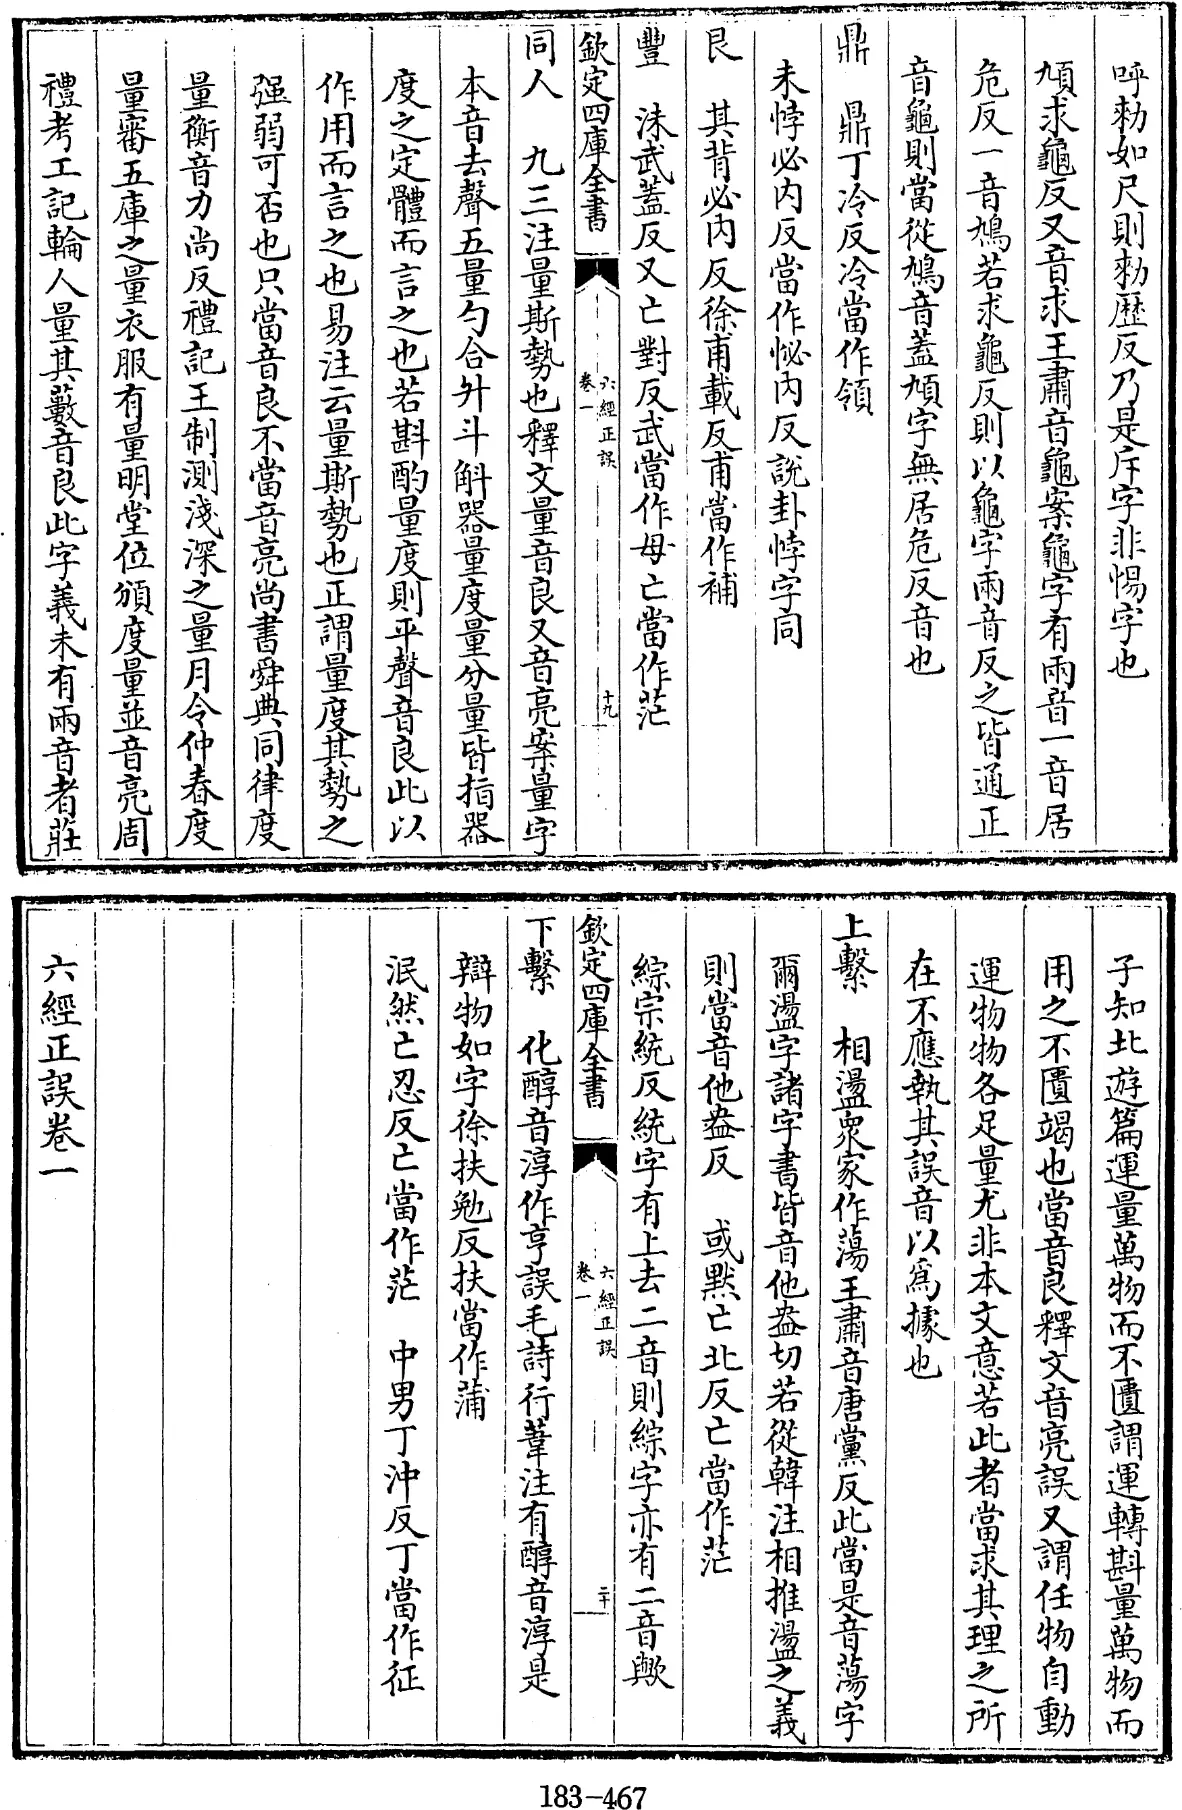 呼勑如尺則勑歷反乃是斥字非惕字也
頄求龜反又音求王肅音龜案龜字有兩音一音居
危反一音鳩若求龜反則以龜字兩音反之皆通正
音龜則當從鳩音蓋頄字無居危反音也
鼎　鼎丁冷反冷當作領
未悖必内反當作怭内反說卦悖字同
艮　其背必内反徐甫載反甫當作補
豐　沬武蓋反又亡對反武當作毋亡當作茫
欽定四庫全書
六經正誤
卷一
十九
同人　九三注量斯勢也釋文量音良又音亮案量字
本音去聲五量勺合升斗斛器量度量分量皆指器
度之定體而言之也若斟酌量度則平聲音良此以
作用而言之也易注云量斯勢也正謂量度其勢之
强弱可否也只當音良不當音亮尚書舜典同律度
量衡音力尚反禮記王制測淺深之量月令仲春度
量審五庫之量衣服有量明堂位頒度量並音亮周
禮考工記輪人量其藪音良此字義未有兩音者莊
子知北遊篇運量萬物而不匱謂運轉斟量萬物而
用之不匱竭也當音良釋文音亮誤又謂任物自動
運物物各足量尤非本文意若此者當求其理之所
在不應執其誤音以爲據也
上繫　相盪衆家作蕩王肅音唐黨反此當是音蕩字
爾盪字諸字書皆音他盎切若從韓注相推盪之義
則當音他盎反　或黙亡北反亡當作茫
綜宗統反統字有上去二音則綜字亦有二音歟
欽定四庫全書
六經正誤
卷一
二十
下繫　化醇音淳作亨誤毛詩行葦注有醇音淳是
辯物如字徐扶勉反扶當作蒲
泯然亡忍反亡當作茫　中男丁沖反丁當作征
六經正誤卷一
183-467